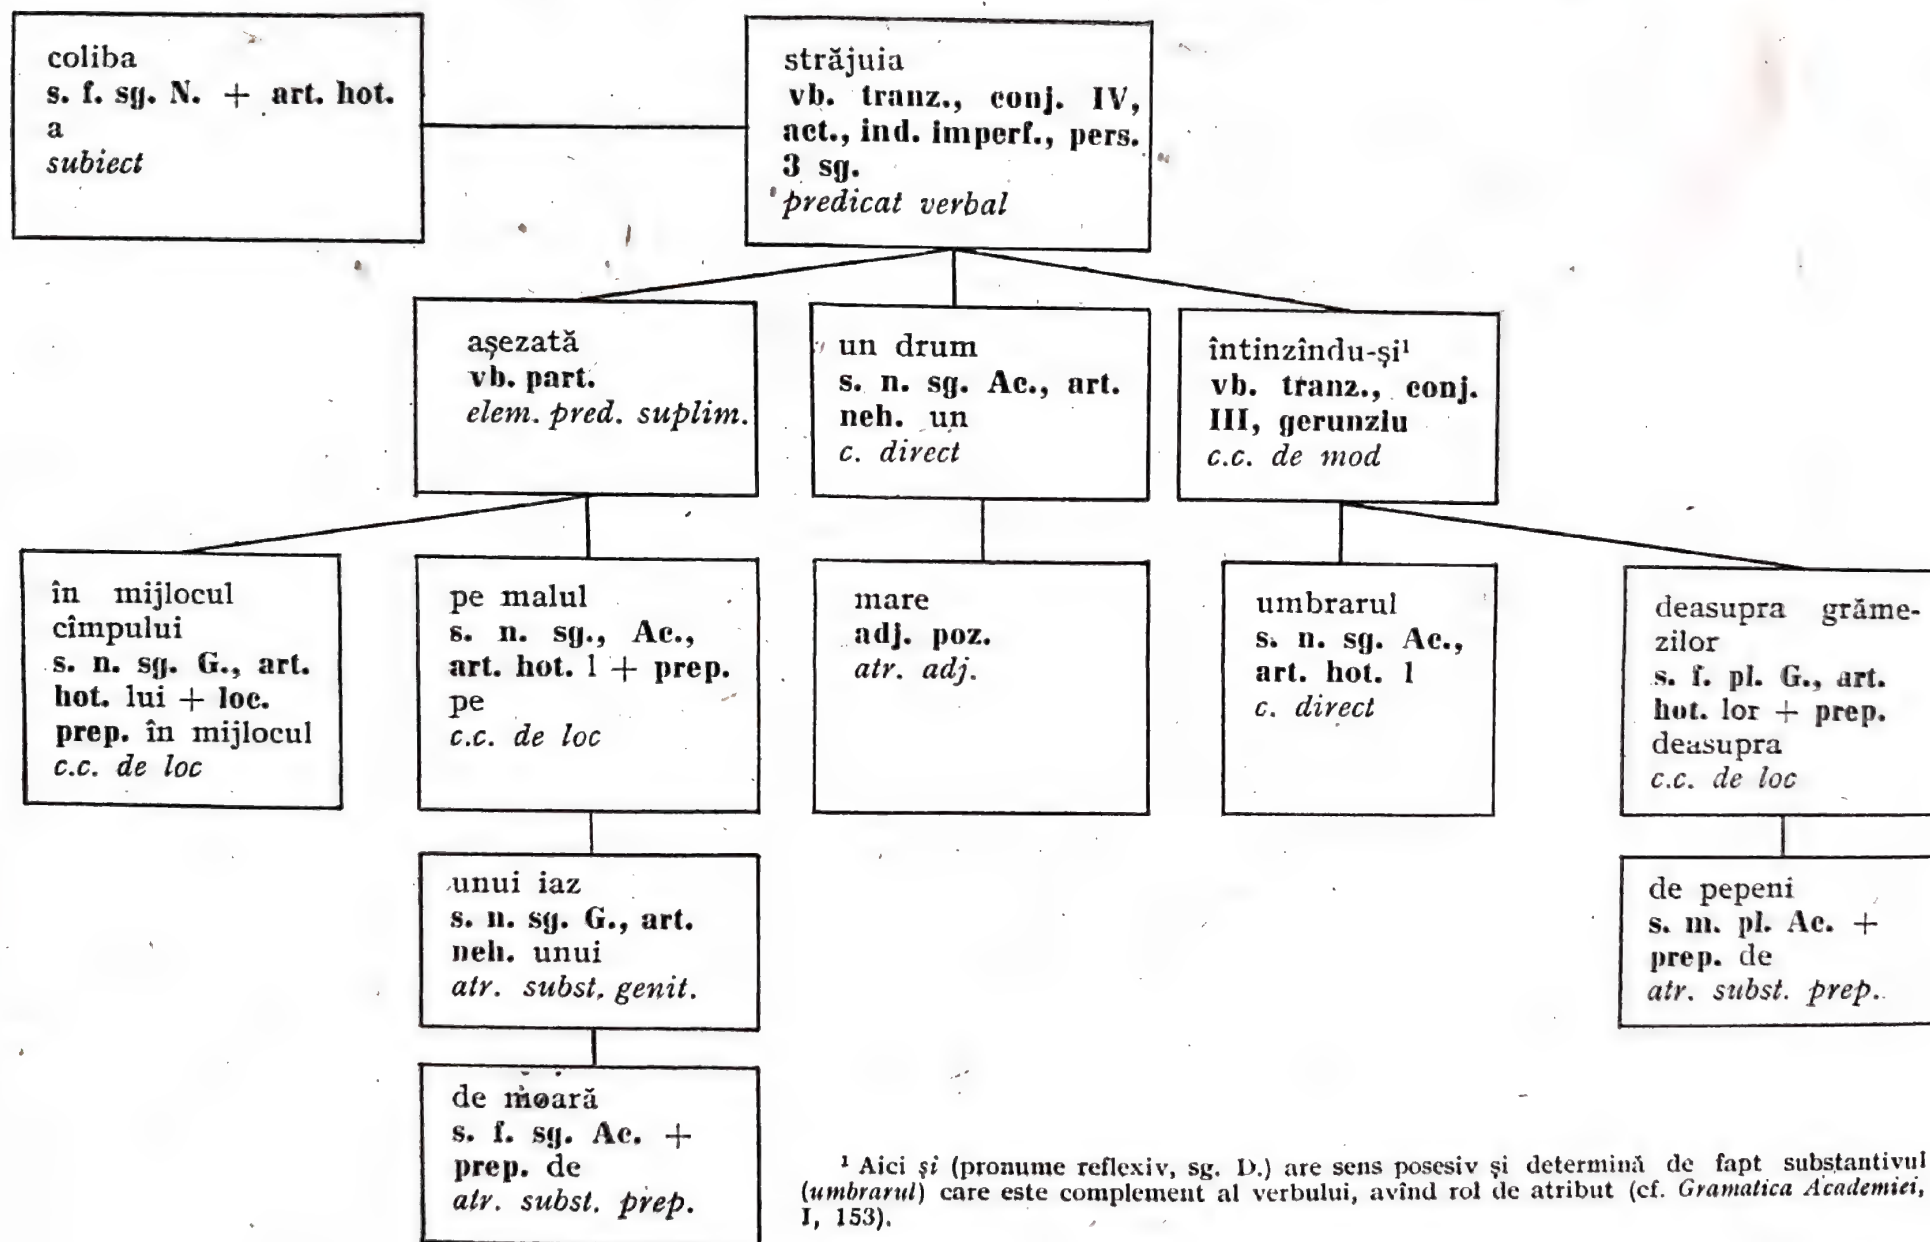 coliba
s. f. sg. N. + art. hot.
a
subiect
străjuia
vb. tranz., conj. IV,
act., ind. imperf., pers.
3 sg.
predicat verbal
așezată
vb. part.
elem. pred. suplim.
un drum
s. n. sg. Ac., art.
neh. un
c. direct
întinzîndu-și¹
vb. tranz., conj.
III, gerunziu
c.c. de mod
în mijlocul
cîmpului
s. n. sg. G., art.
hot. lui + loc.
prep. în mijlocul
c.c. de loc
pe malul
s. n. sg., Ac.,
art. hot. l + prep.
pe
c.c. de loc
mare
adj. poz.
atr. adj.
umbrarul
s. n. sg. Ac.,
art. hot. l
c. direct
deasupra grăme-
zilor
s. f. pl. G., art.
hot. lor + prep.
deasupra
c.c. de loc
unui iaz
s. n. sg. G., art.
neh. unui
atr. subst. genit.
de pepeni
s. m. pl. Ac. +
prep. de
atr. subst. prep.
de moară
s. f. sg. Ac. +
prep. de
atr. subst. prep.
¹ Aici și (pronume reflexiv, sg. D.) are sens posesiv și determină de fapt substantivul
(umbrarul) care este complement al verbului, avînd rol de atribut (cf. Gramatica Academiei,
I, 153).